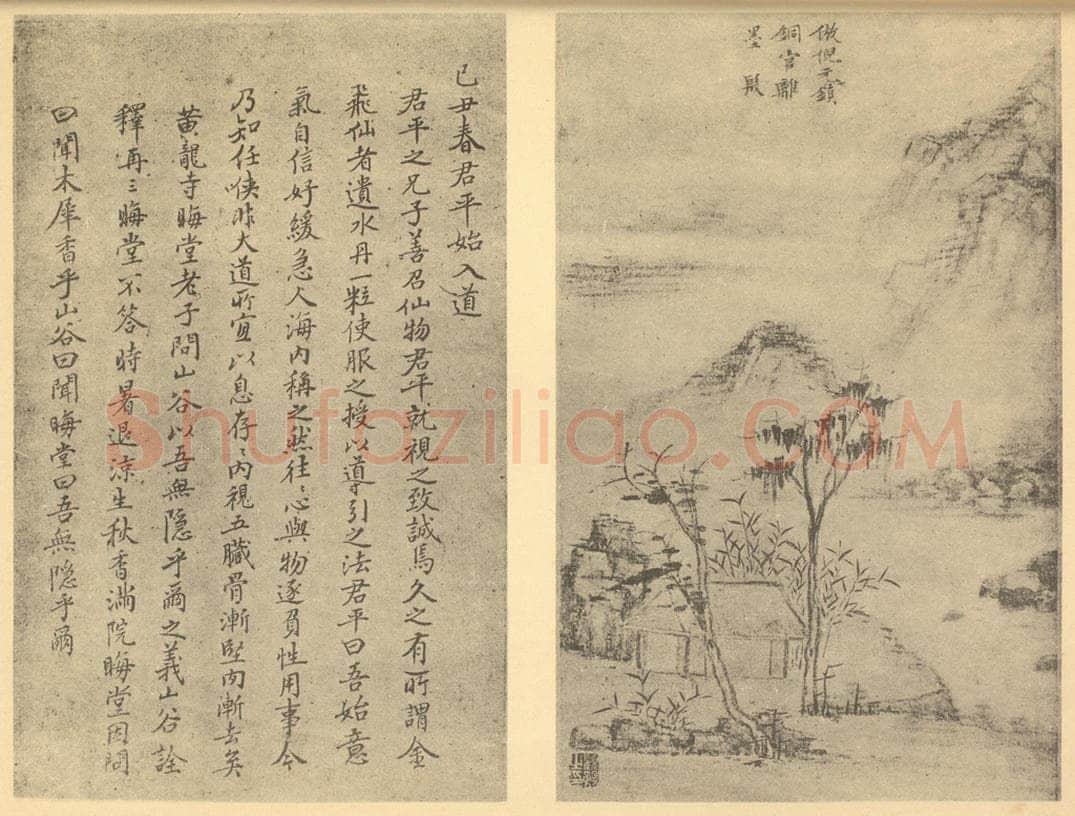 倣倪元鎮
銅官離
墨
己丑春君平始入道
君平之兄子善召仙物君平就視之致誠焉久之有所謂金
飛仙者遺水丹一粒使服之授以導引之法君平曰吾始意
氣自信好緩急人海内稱之然往〻心與物逐負性用事今
乃知任俠非大道所宜以息存〻内視五臟骨漸堅肉漸去矣
黄龍寺晦堂老子問山谷以吾無隱乎爾之義山谷詮
釋再三晦堂不答時暑退涼生秋香滿院晦堂因問
曰聞木犀香乎山谷曰聞晦堂曰吾無隱乎爾
Shufaziliao.COM